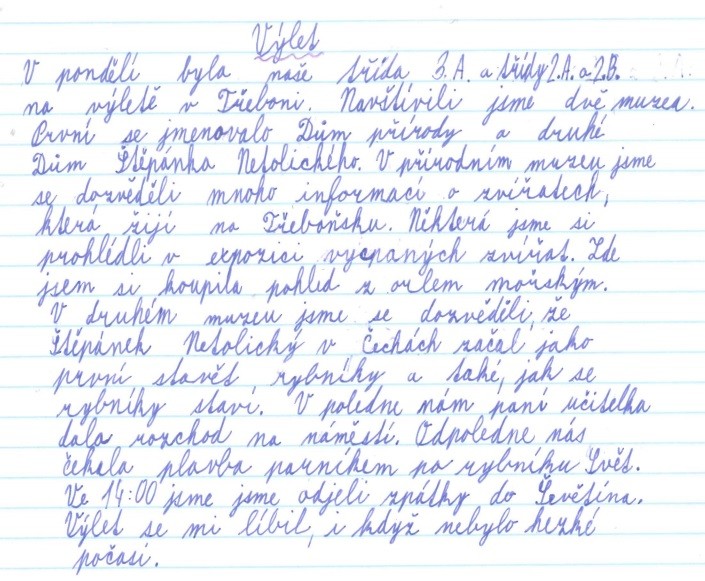 Výlet
V pondělí byla naše třída 3.A. a třídy 2.A. a 2.B.
na výletě v Třeboni. Navštívili jsme dvě muzea.
První se jmenovalo Dům přírody a druhé
Dům Štěpánka Netolického. V přírodním muzeu jsme
se dozvěděli mnoho informací o zvířatech,
která žijí na Třeboňsku. Některá jsme si
prohlédli v expozici vycpaných zvířat. Zde
jsem si koupila pohled z orlem mořským.
V druhém muzeu jsme se dozvěděli, že
Štěpánek Netolický v Čechách začal jako
první stavět rybníky a také, jak se
rybníky staví. V poledne nám paní učitelka
dala rozchod na náměstí. Odpoledne nás
čekala plavba parníkem po rybníku Svět.
Ve 14:00 jsme jsme odjeli zpátky do Ševětína.
Výlet se mi líbil, i když nebylo hezké
počasí.